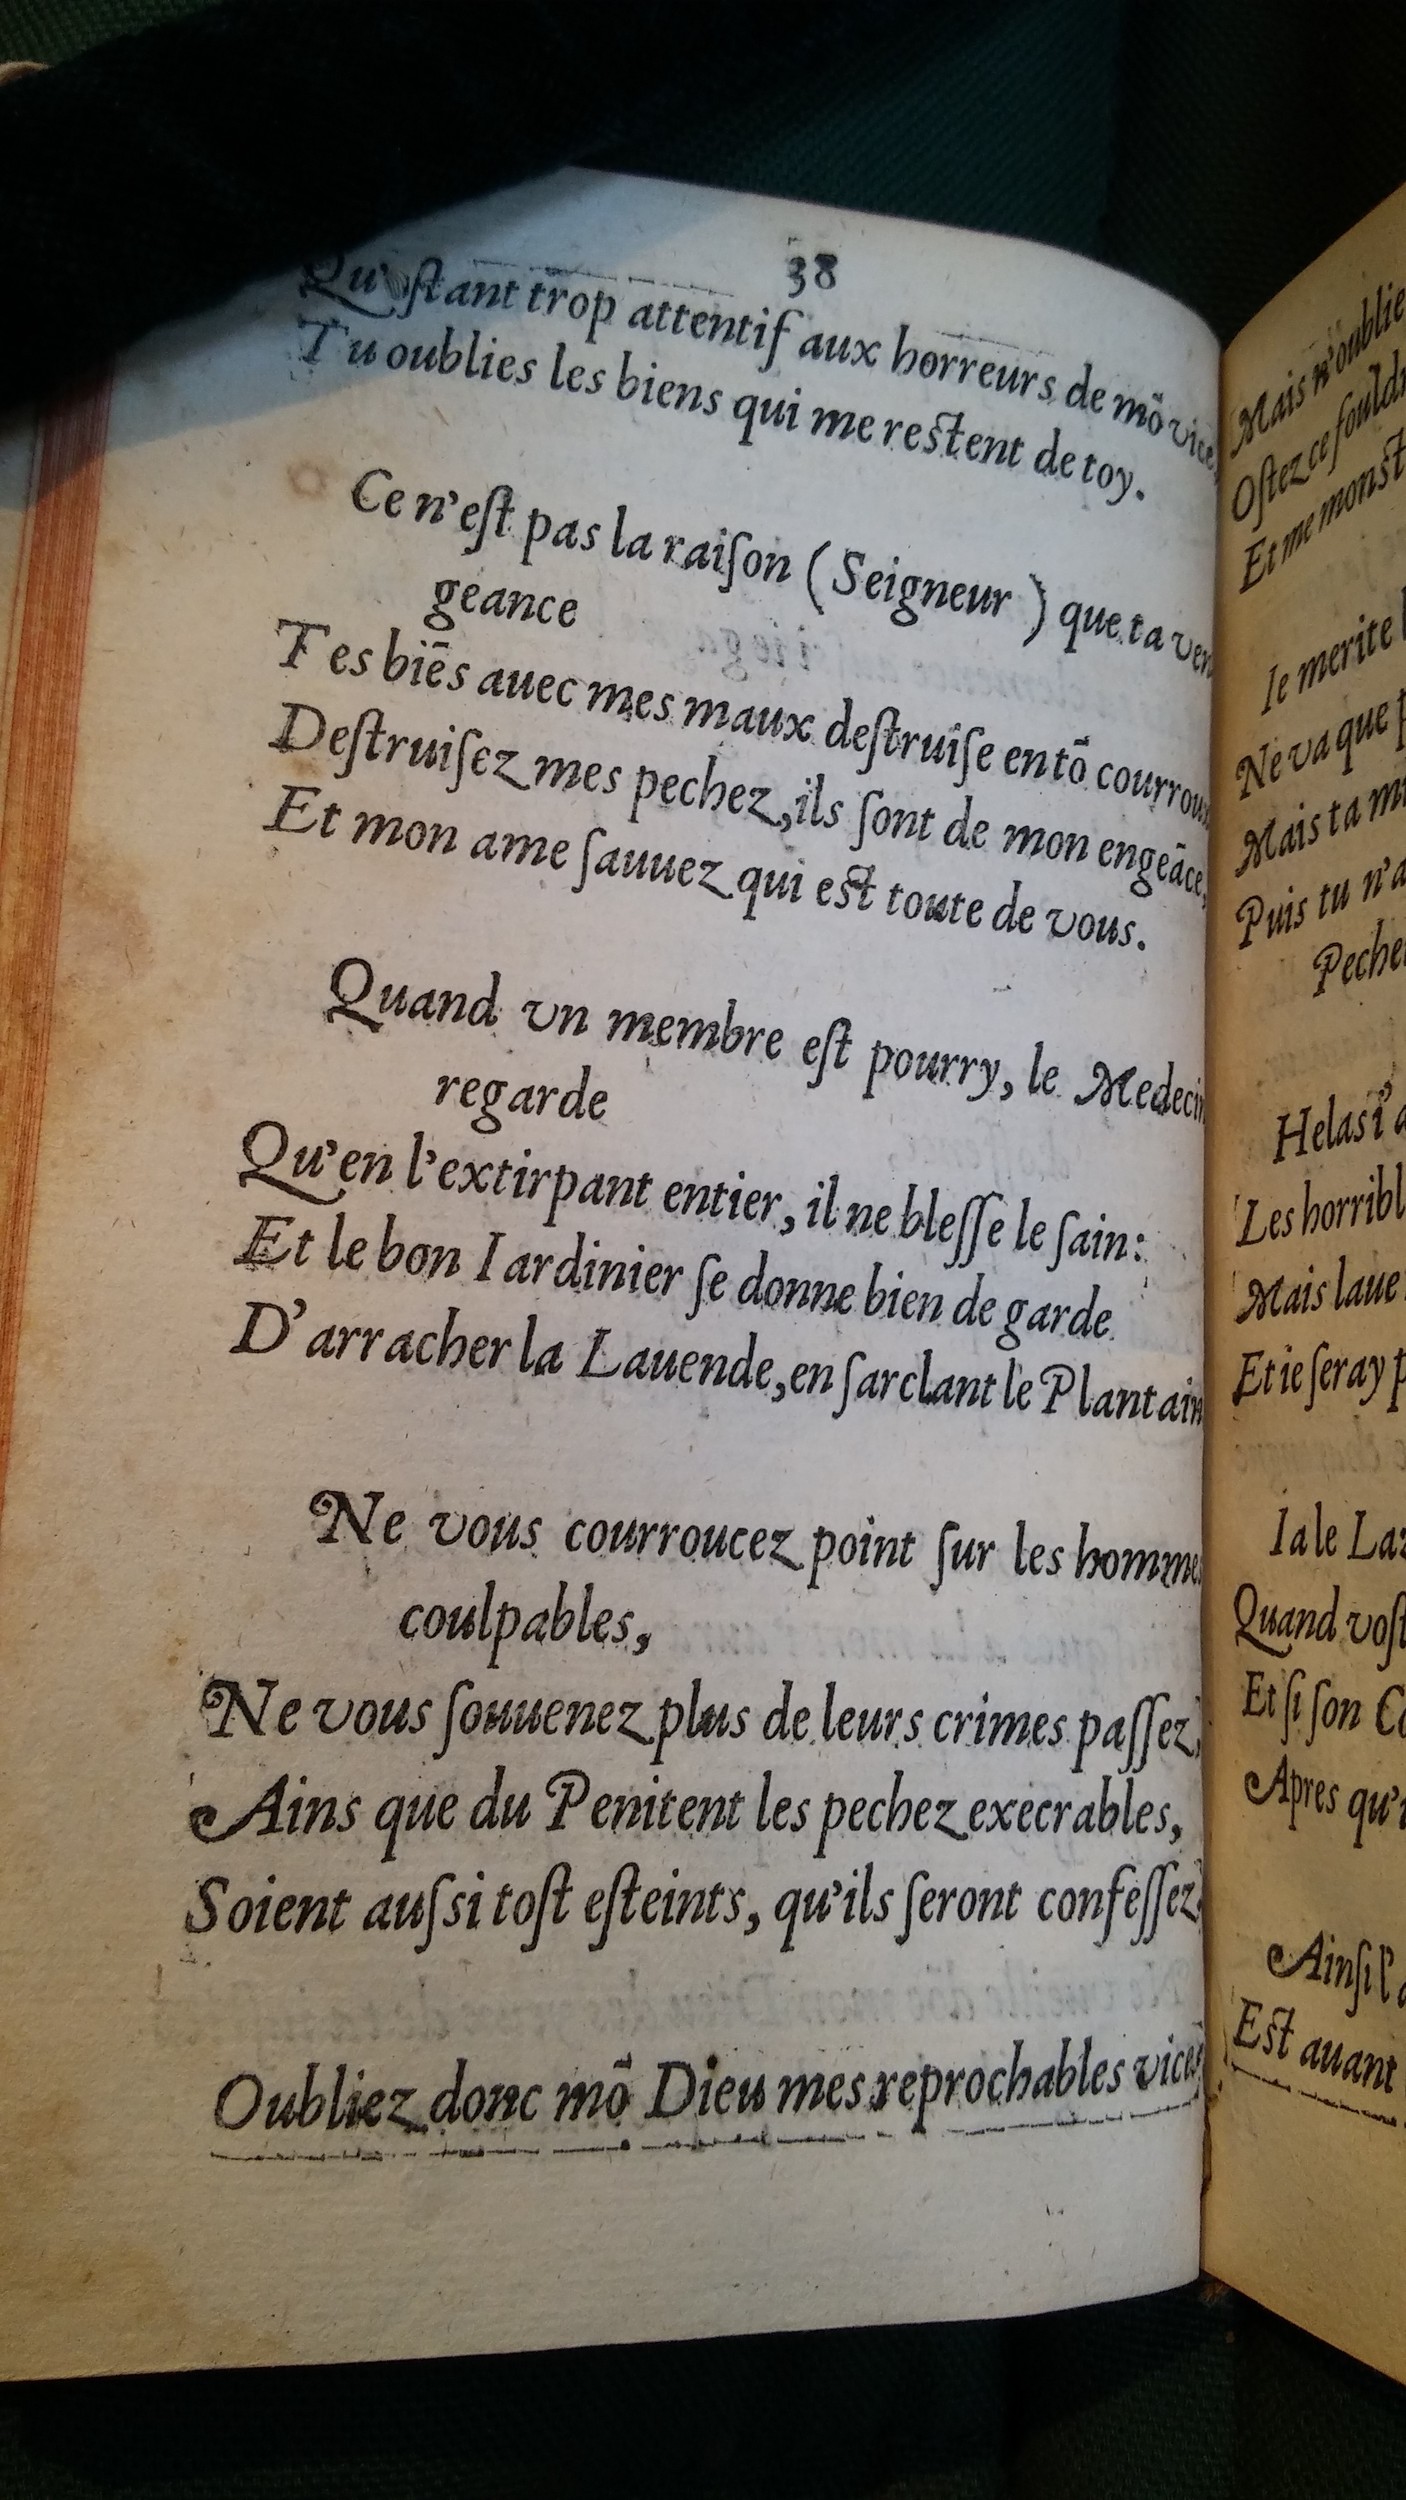 38
Qu'estant trop attentif aux horreurs de mō vice
Tu oublies les biens qui me reſtent de toy.
Ce n'eſt pas la raiſon (Seigneur) que ta ven
geance
Tes biēs auec mes maux deſtruiſe en tō courroux
Deſtruiſez mes pechez, ils ſont de mon engeāce,
Et mon ame ſauuez qui eſt toute de vous.
Quand vn membre eſt pourry, le Medecin
regarde
Qu'en l'extirpant entier, il ne bleſſe le ſain:
Et le bon Iardinier ſe donne bien de garde
D'arracher la Lauende, en ſarclant le Plantain
Ne vous courroucez point ſur les hommes
coulpables,
Ne vous ſouuenez plus de leurs crimes paſſez,
Ains que du Penitent les pechez execrables,
Soient auſsi toſt eſteints, qu'ils ſeront confeſſez
Oubliez donc mō Dieu mes reprochables vices
Mais n'oublie
Oſtez ce fouldr
Et me monſt
Ie merite
Ne va que
Mais ta m
Puis tu n'a
Peche
Helas i'a
Les horribl
Mais laue
Et ie ſeray p
Ia le Laz
Quand voſt
Et ſi ſon Co
Apres qu'i
Ainſi l'
Eſt auant